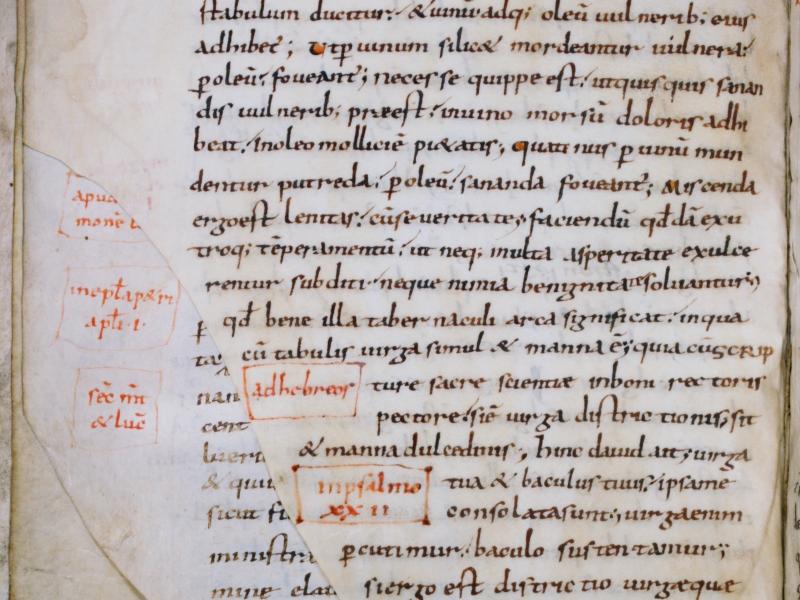 stabulum ducitur; & vinū adq; oleū vulnerib; eius
adhibet̄; Ut ꝑ vinum scilic& mordeantur vulnera;
ꝑ oleū; foveant̄; necesse quippe est; ut quisquis sanan
dis vulnerib; preest; in vino morsū doloris adhi
beat; In oleo molliciē pi&atis; quatinus ꝑ vinū mun
dentur putreda; ꝑ oleū; sananda foveant̄; Miscenda
ergo est lenitas; cū severitate; faciendū qd̄dā ex u
troq; tēperamentū; ut neq; multa asperitate exulce
rentur subditi neque nimia benignitate solvantur;
qd̄ bene illa tabernaculi arca significat; in qua
cū tabulis virga simul & manna ē; quia cū scrip
ture sacre scientia in boni rectoris
pectore; si ē virga districtionis; sit
& manna dulcedinis; hinc david ait; virga
tua & baculus tuus; ipsa me
consolata sunt; virga enim
ꝑcutimur; baculo sustentamur;
si ergo est districtio virgæ que
apud
monē
in ept̄ a p&ri
apl̄i · i ·
sēc
& lūc
ad hebreos
in psalmo
xx ii
ꝑ
nan
cent
& qui
sicut
ministra